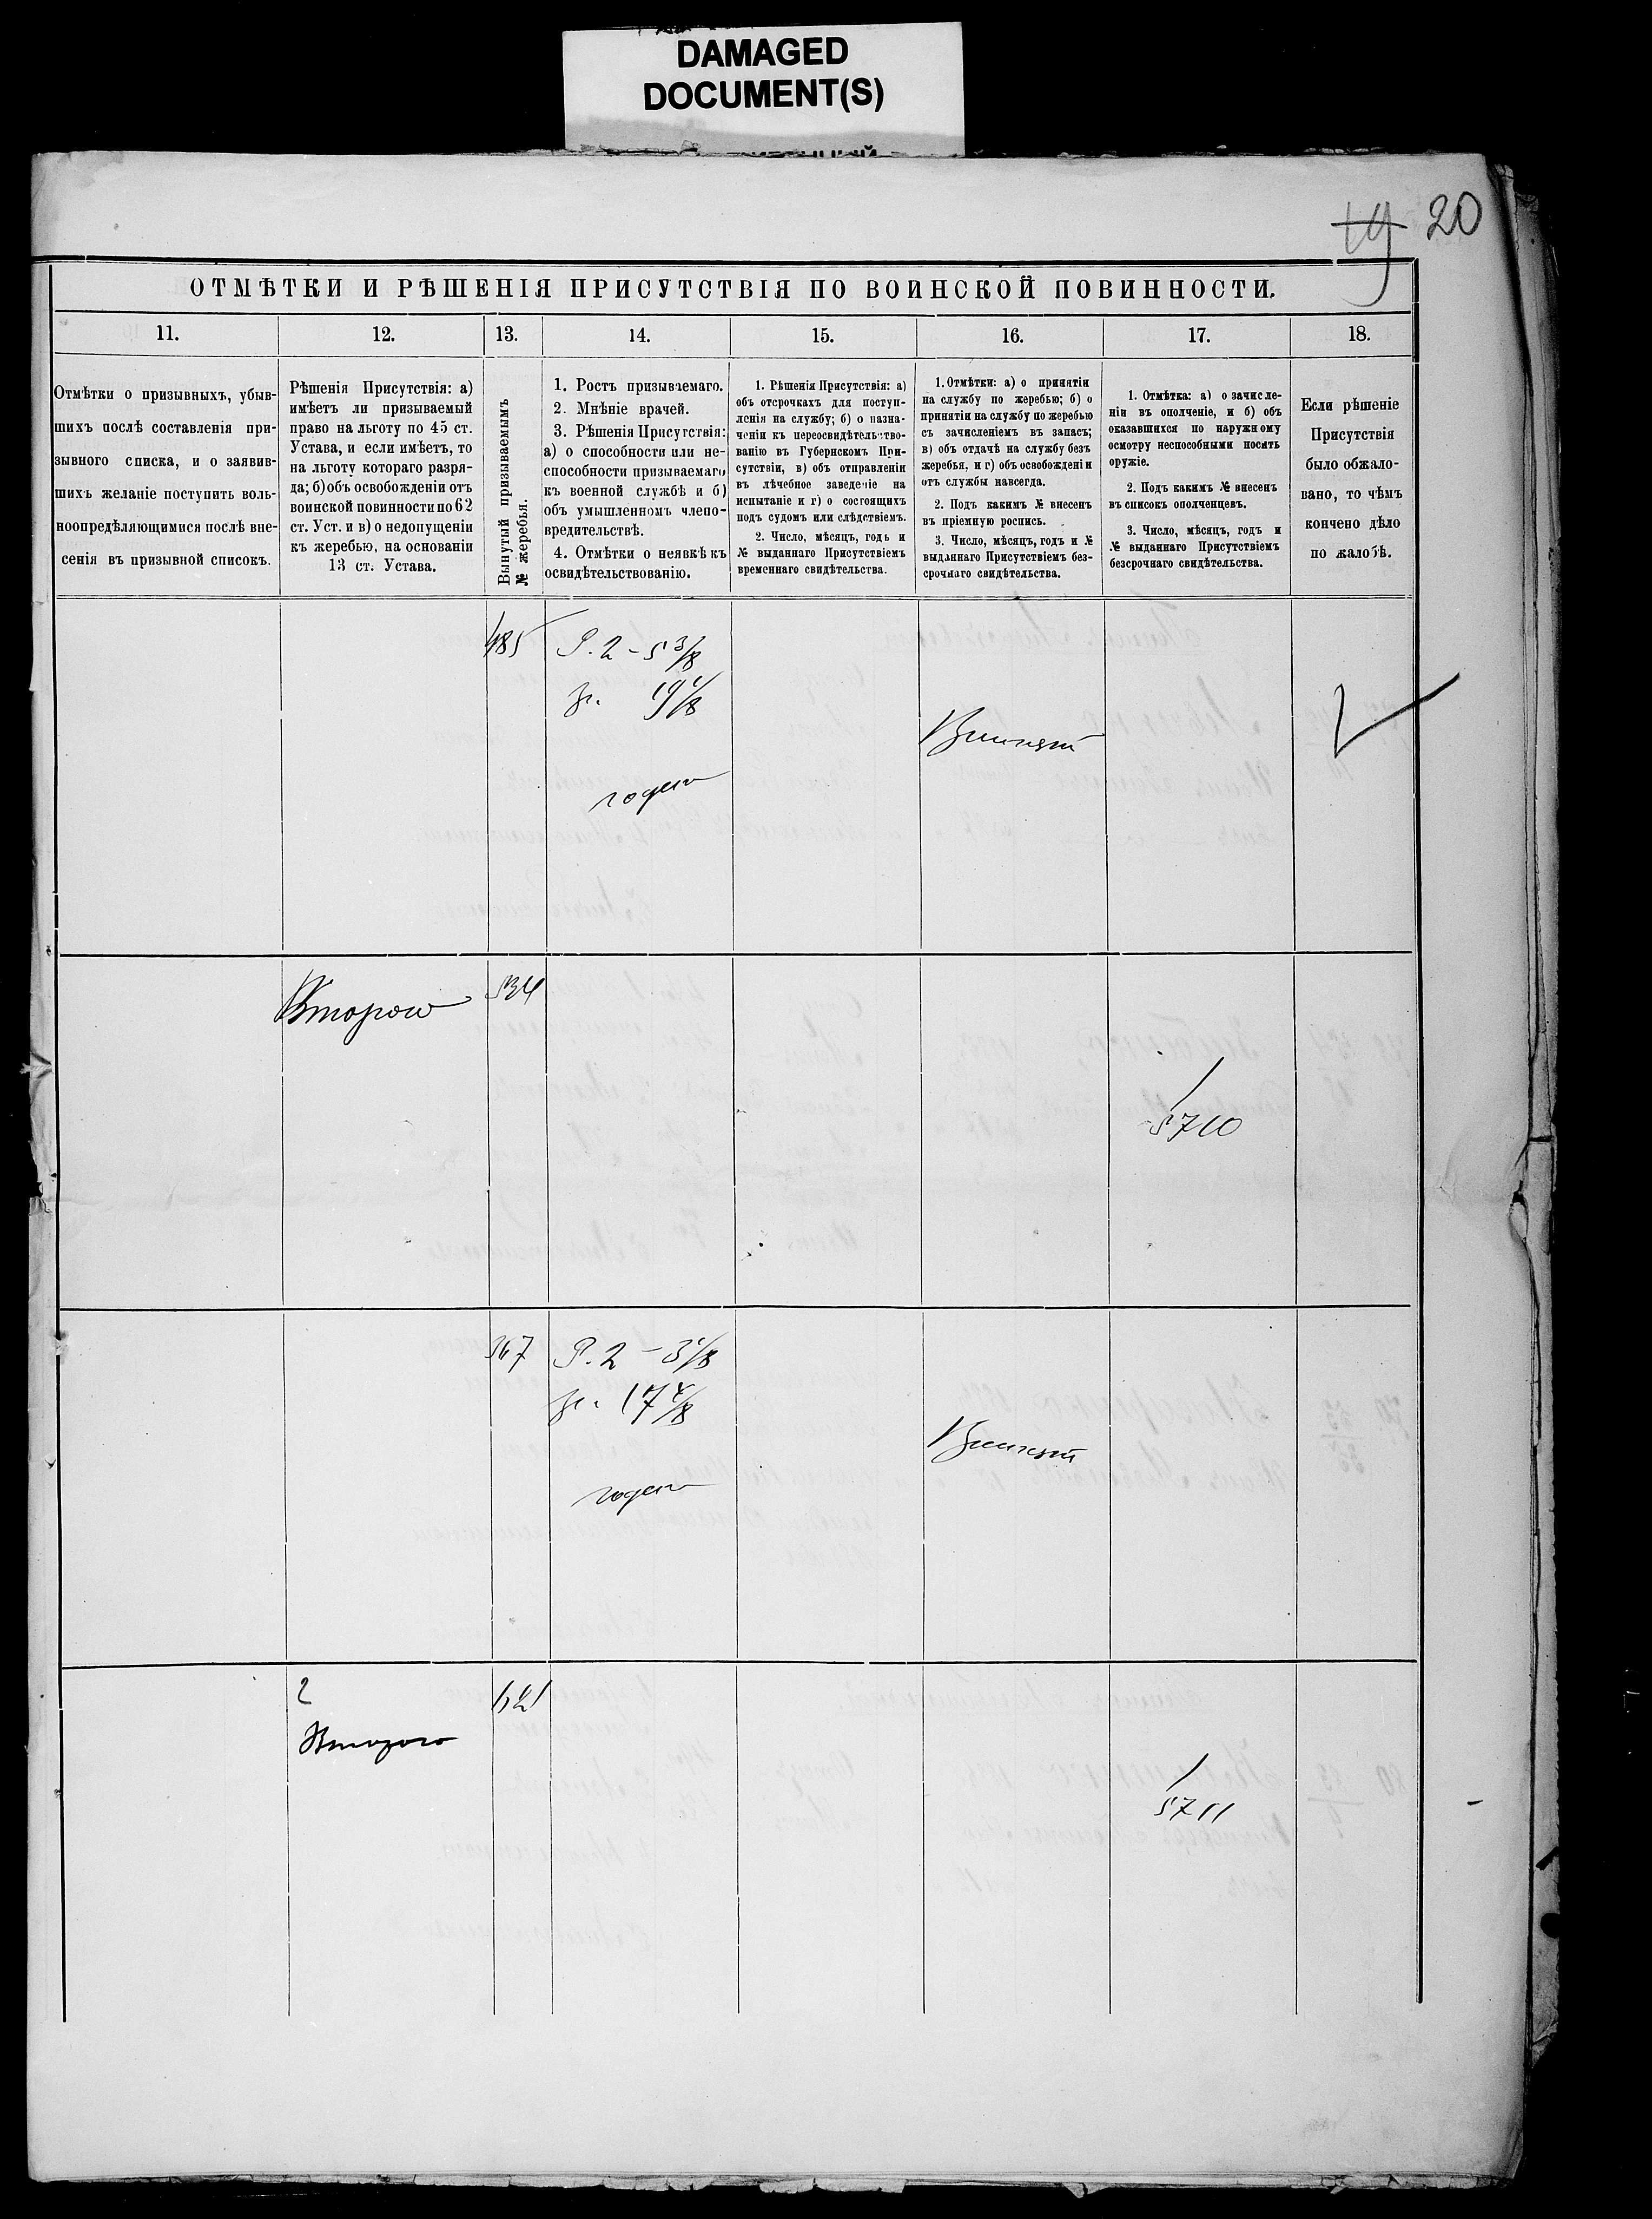 DAMAGED
DOCUMENT(S)
19 20
ОТМѢТКИ И РѢШЕНІЯ ПРИСУТСТВІЯ ПО ВОИНСКОЙ ПОВИННОСТИ.
11.
12.
13.
14.
15.
16.
17.
18.
Отмѣтки о призывныхъ, убыв-
шихъ послѣ составленія при-
зывного списка, и о заявив-
шихъ желаніе поступить воль-
ноопредѣляющимися послѣ вне-
сенія въ призывной списокъ.
Рѣшенія Присутствія: а)
имѣетъ ли призываемый
право на льготу по 45 ст.
Устава, и если имѣетъ, то
на льготу котораго разря-
да; б) объ освобожденіи отъ
воинской повинности по 62
ст. Уст. и в) о недопущеніи
къ жеребью, на основаніи
13 ст. Устава.
Вынутый призываемымъ
№ жеребья.
1. Ростъ призываемаго.
2. Мнѣніе врачей.
3. Рѣшенія Присутствія:
а) о способности или не-
способности призываемаго
къ военной службѣ и б)
объ умышленномъ члено-
вредительствѣ.
4. Отмѣтки о неявкѣ къ
освидѣтельствованію.
1. Рѣшенія Присутствія: а)
объ отсрочкахъ для поступ-
ленія на службу; б) о назна-
ченіи къ переосвидѣтельство-
ванію въ Губернскомъ При-
сутствіи, в) объ отправленіи
въ лѣчебное заведеніе на
испытаніе и г) о состоящихъ
подъ судомъ или слѣдствіемъ.
2. Число, мѣсяцъ, годъ и
№ выданнаго Присутствіемъ
временнаго свидѣтельства.
1. Отмѣтки: а) о принятіи
на службу по жеребью; б) о
принятіи на службу по жеребью
съ зачисленіемъ въ запасъ;
в) объ отдачѣ на службу безъ
жеребья, и г) объ освобожденіи
отъ службы навсегда.
2. Подъ какимъ № внесенъ
въ пріемную роспись.
3. Число, мѣсяцъ, годъ и №
выданнаго Присутствіемъ без-
срочнаго свидѣтельства.
1. Отмѣтка: а) о зачисле-
ніи въ ополченіе, и б) объ
оказавшихся по наружному
осмотру неспособными носить
оружіе.
2. Подъ какимъ № внесенъ
въ списокъ ополченцевъ.
3. Число, мѣсяцъ, годъ и
№ выданнаго Присутствіемъ
безсрочнаго свидѣтельства.
Если рѣшеніе
Присутствія
было обжало-
вано, то чѣмъ
кончено дѣло
по жалобѣ.
485
Р. 2 – 5 3/8
гр. 19 1/8
годенъ
Принятъ
Второго
534
5710
367
Р. 2 – 3 1/8
гр. 17 4/8
годенъ
Принятъ
2
Второго
621
5711